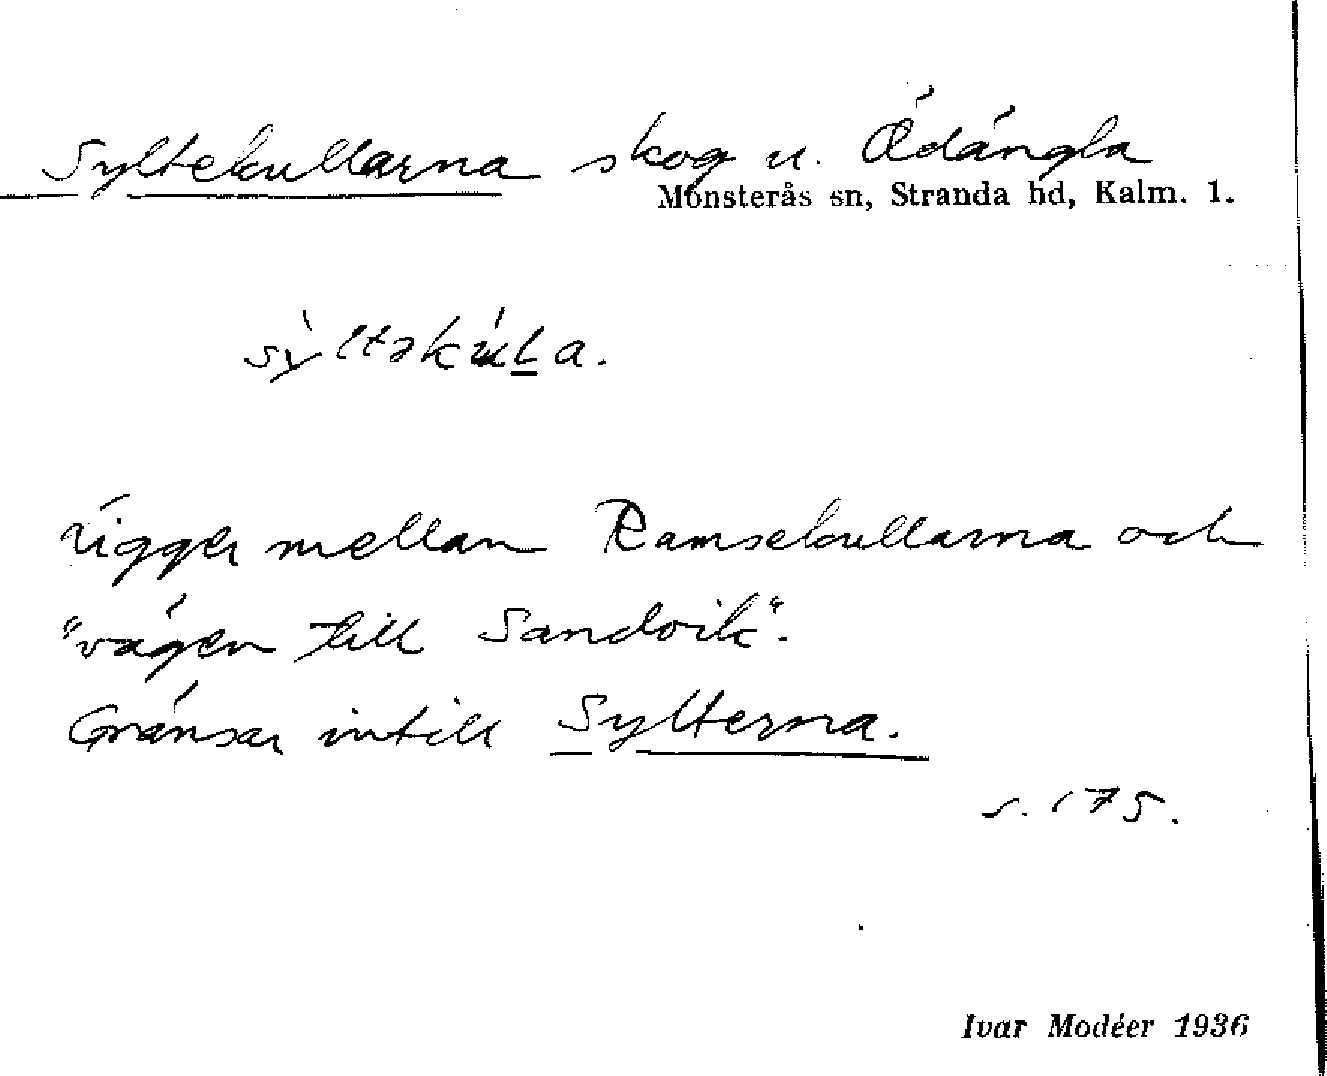 Syltekullarna skog u. Ödängla
Mönsterås sn, Stranda hd, Kalm. l.
sỳltəkúḷa.
Ligger mellan Ramsekullarna och
"vägen till Sandvik".
Gränsar intill Sylterna.
s. 175.
Ivar Modéer 1936